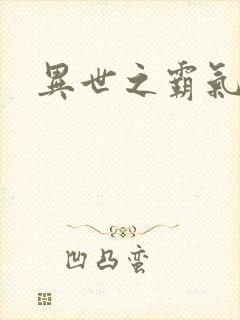 異世之霸氣
凹凸蛮